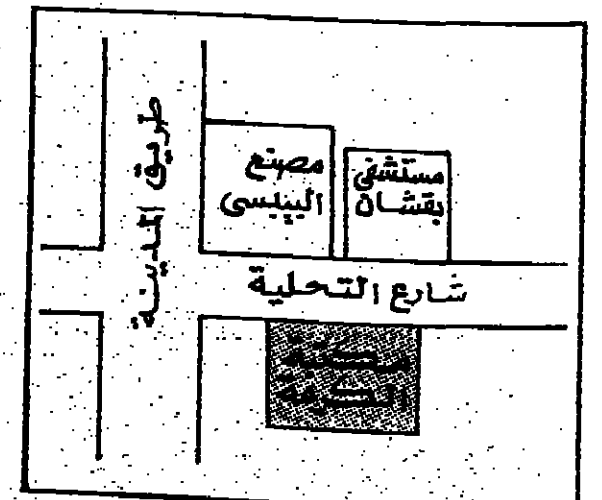 طريق المدينة
مصنع
الببسى
مستشفى
بقشان
شارع التحلية
مكتبة